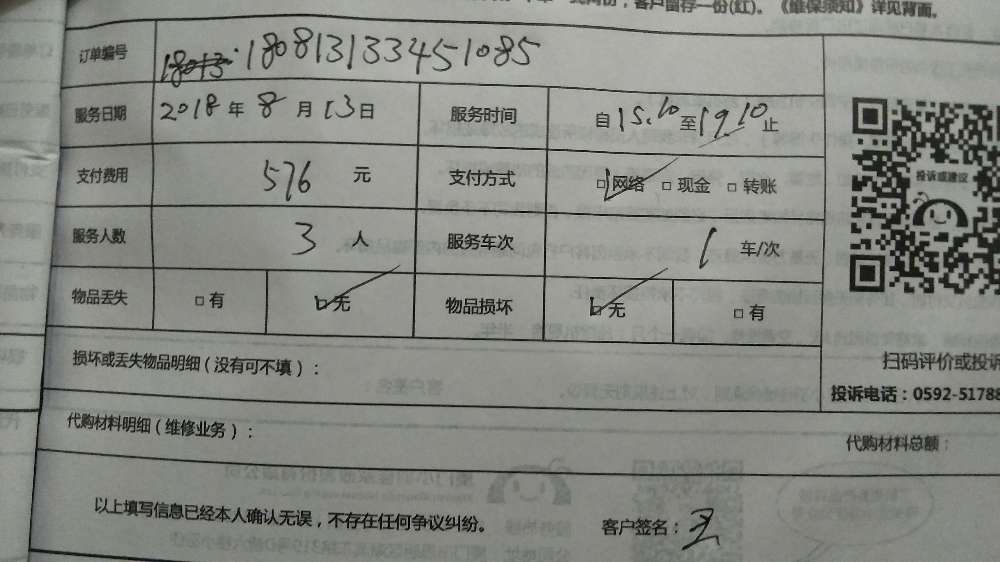 客户留存一份(红)。《维保须知》详见背面。
订单编号 180813133451085
服务日期 2018年8月13日 服务时间 自15.10至19.10止
支付费用 576元 支付方式 网络 □现金 □转账
投诉或建议
服务人数 3人 服务车次 1车/次
物品丢失 □有 □无 物品损坏 □无 □有
损坏或丢失物品明细(没有可不填):
扫码评价或投诉
投诉电话:0592-51788
代购材料明细(维修业务):
代购材料总额:
以上填写信息已经本人确认无误,不存在任何争议纠纷。 客户签名: